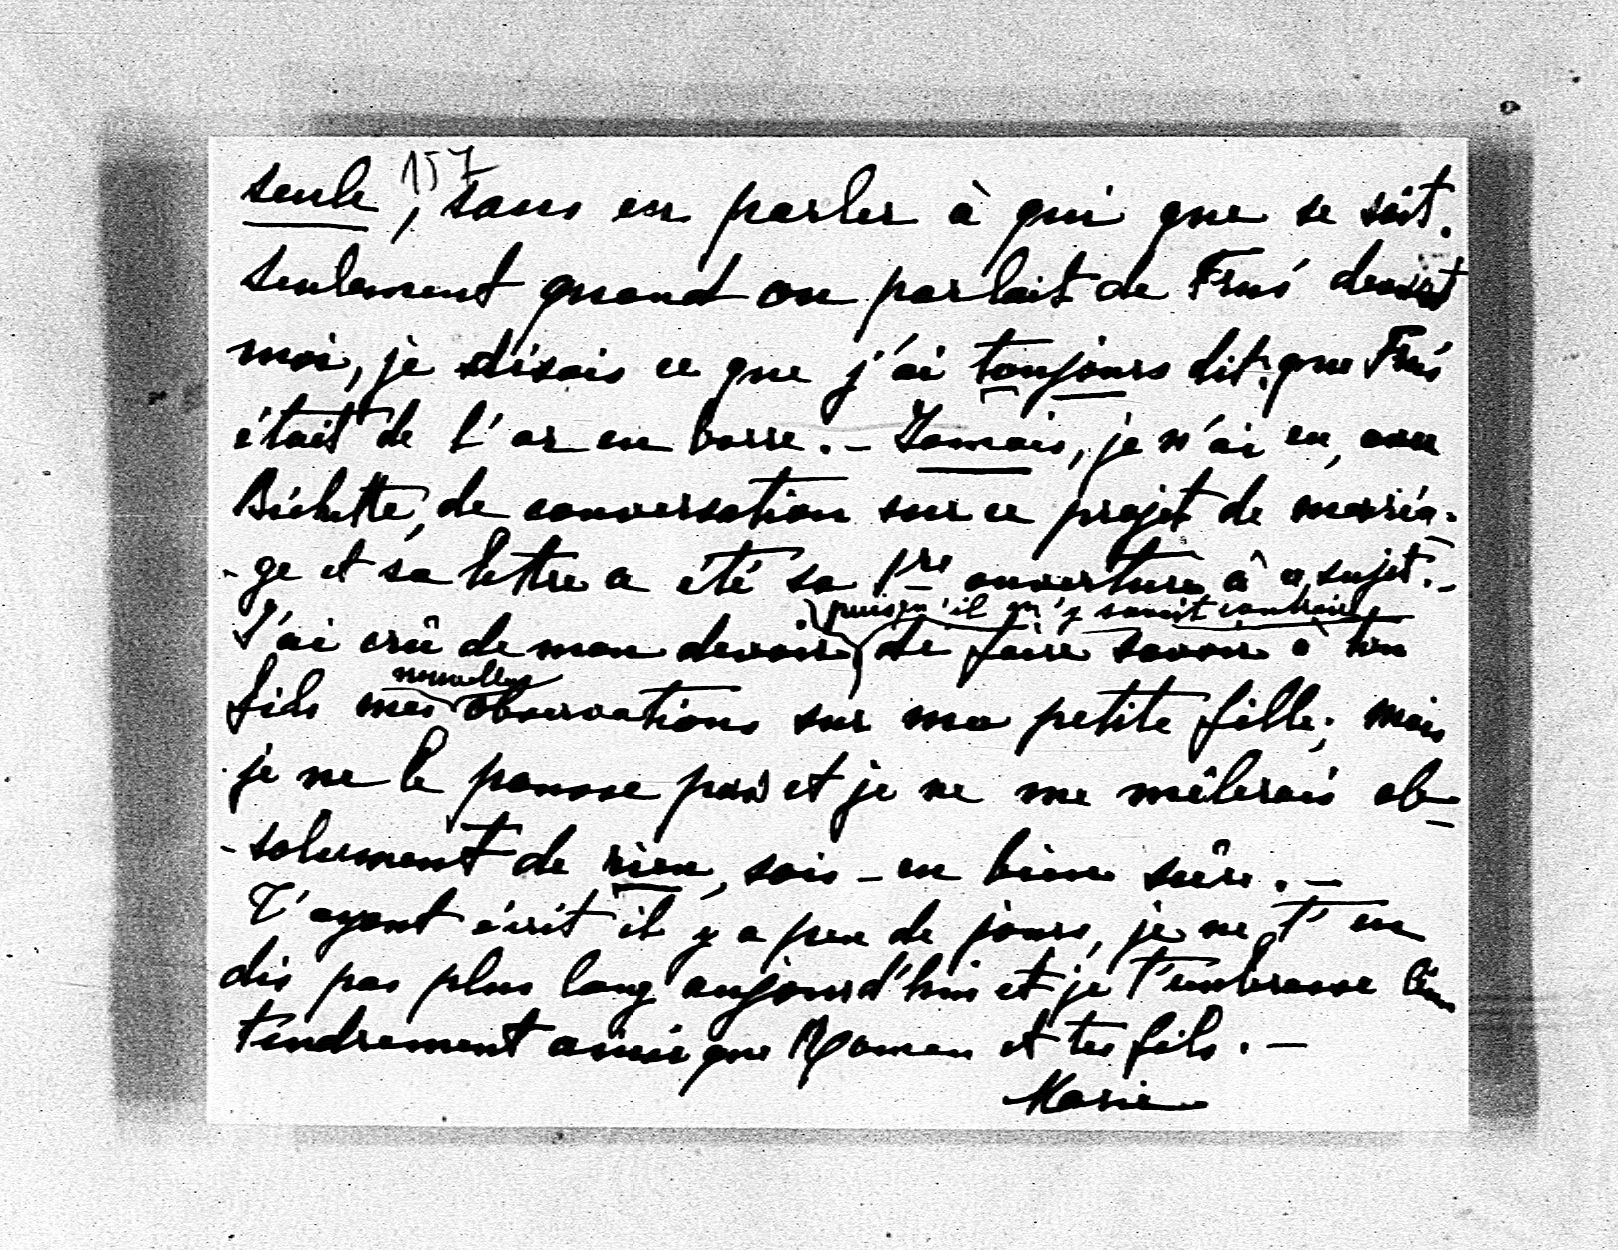 157
seule, sans en parler à qui que se soit.
Seulement quand on parlait de devant
moi, je disais ce que j'ai toujours dit: que
était de l'or en barre. - Jamais, je n'ai eu, avec
Bichette, de conversation sur ce projet de maria-
-ge et sa lettre a été sa 1re ouverture à ce sujet. -
puisqu'il m'y
J'ai crû de mon devoir, de faire savoir à ton
nouvelles
fils mes observations sur ma petite fille; mais
je ne le pousse pas et je ne me mêlerais ab-
-solument de rien, sois-en bien sûre. -
T'ayant écrit il y a peu de jours, je ne t'en
dis pas plus long aujourd'hui et je t'embrasse bien
tendrement ainsi que et tes fils. -
Marie